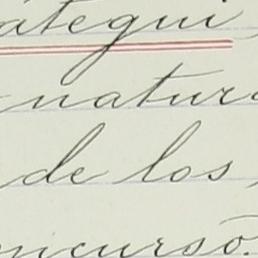 átegui
natur
de los
oncurso.